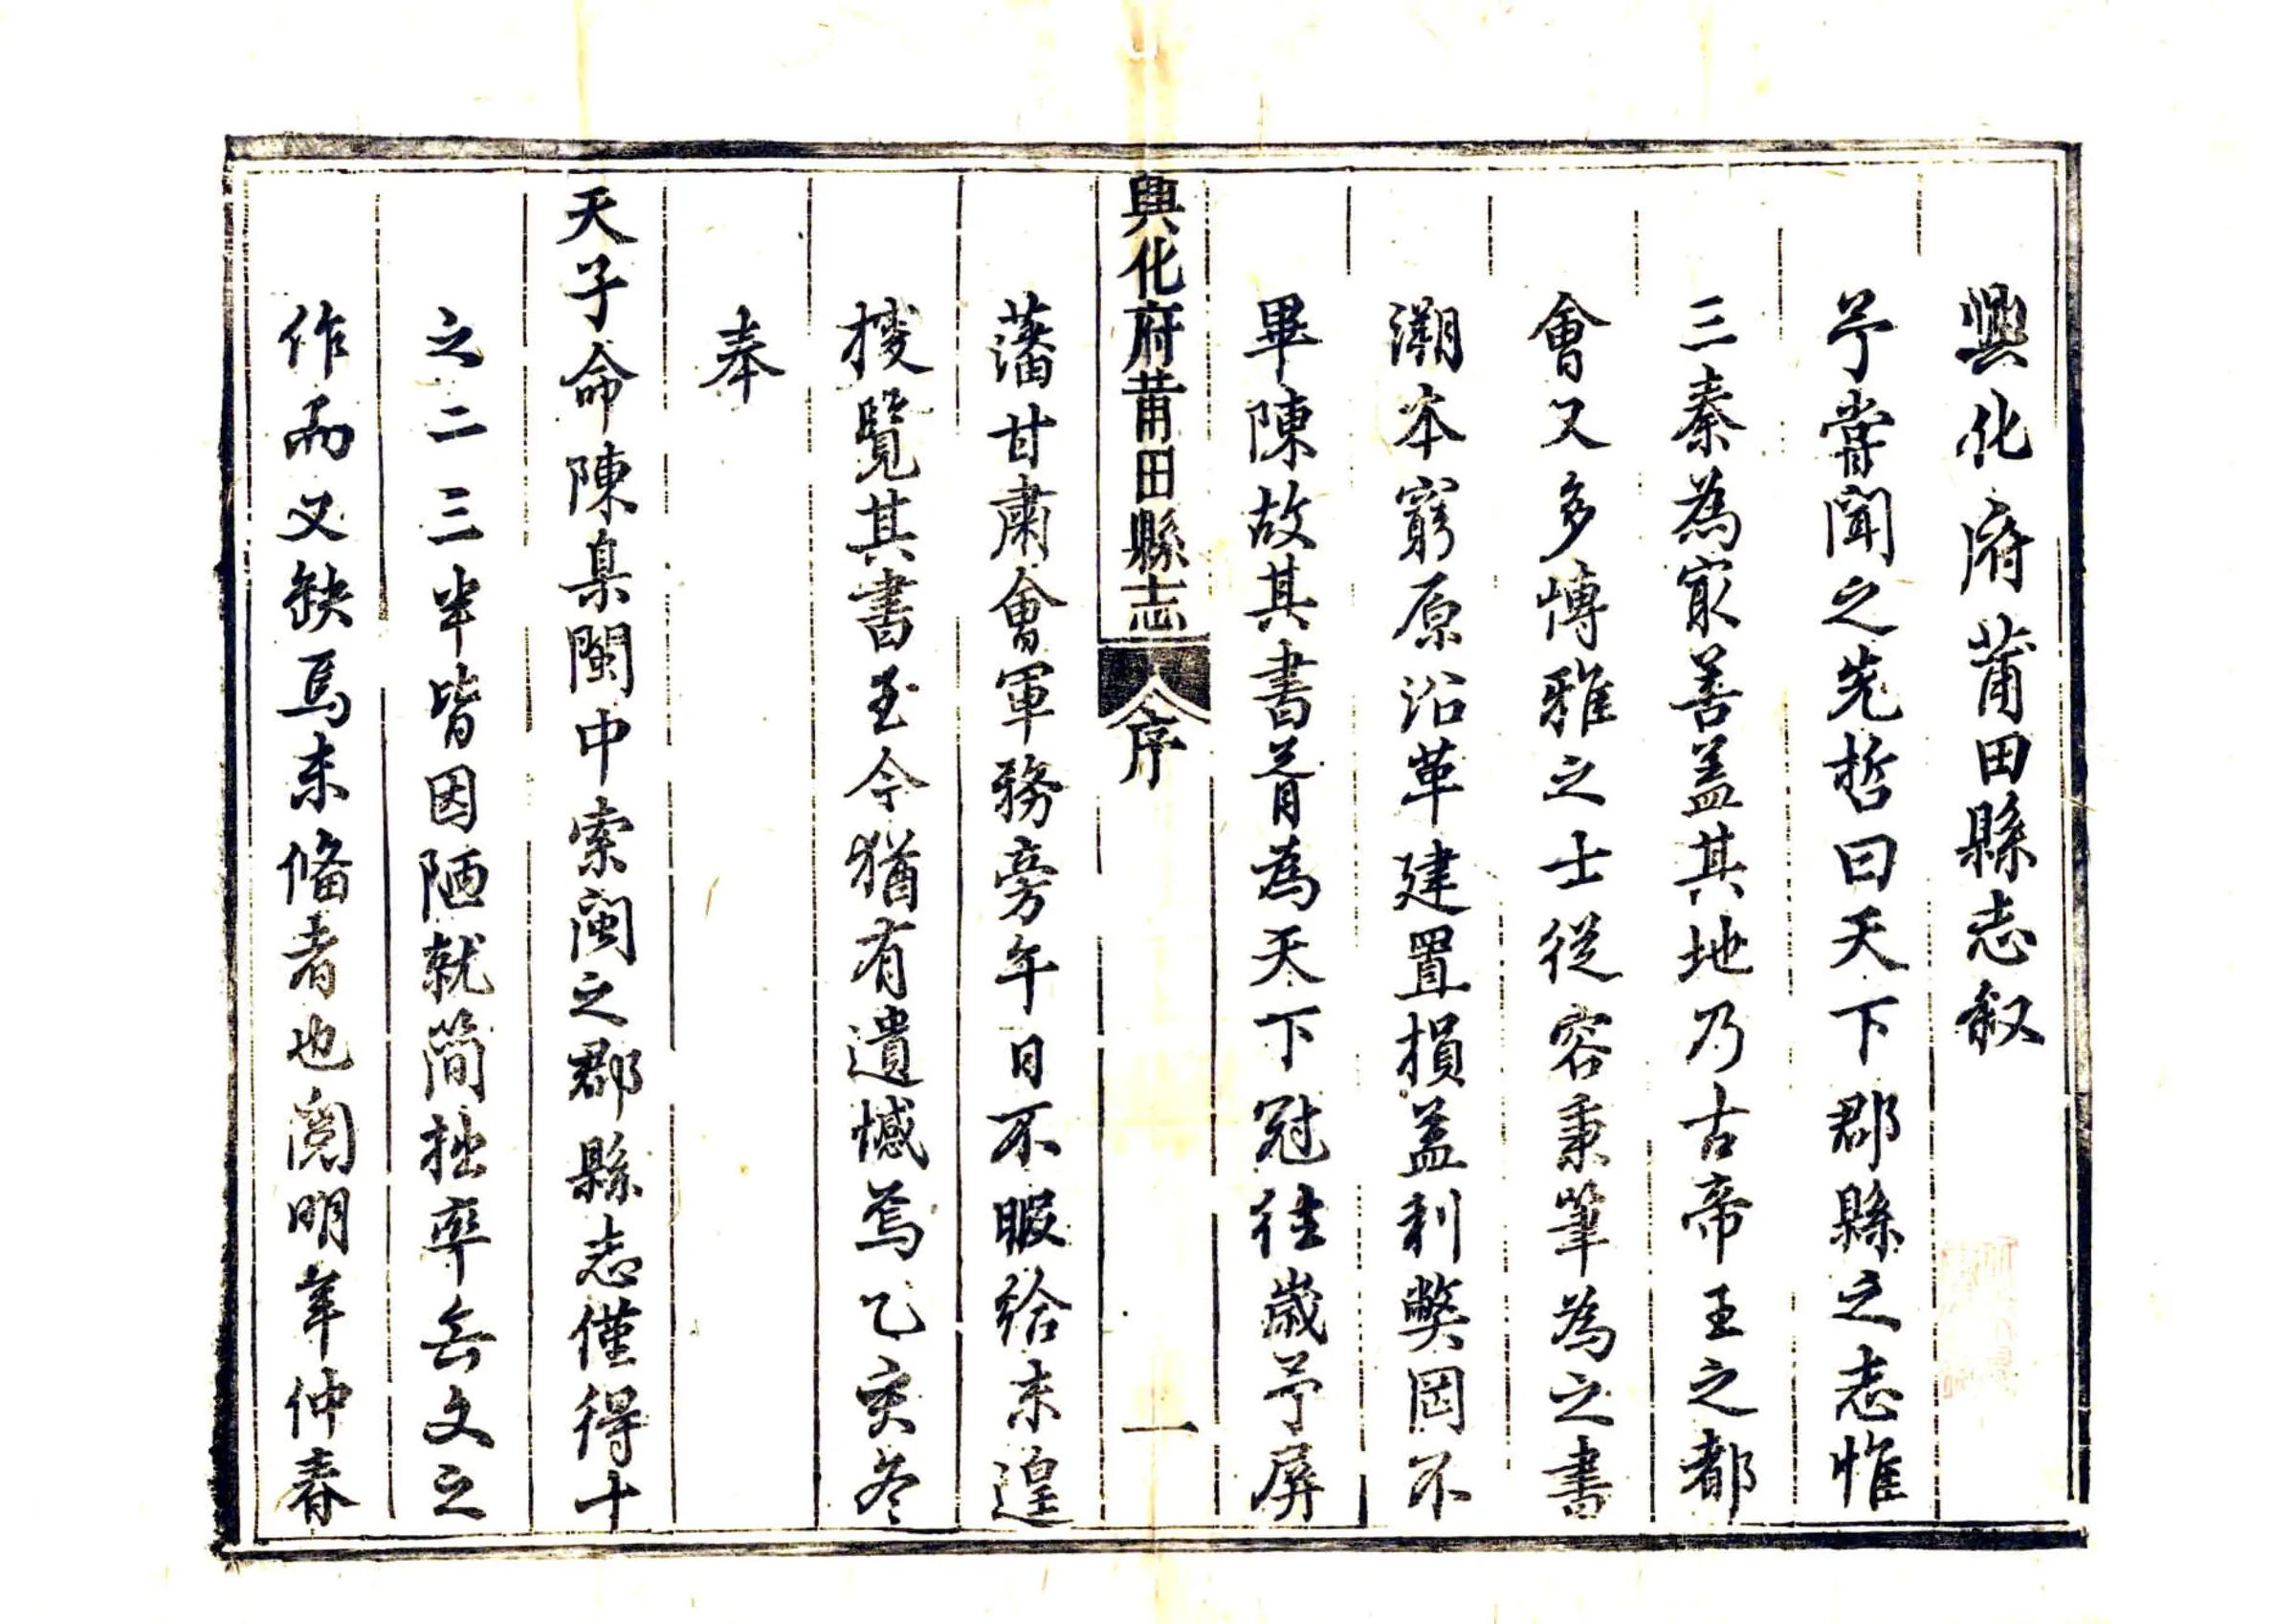 興化府莆田縣志叙
予嘗聞之先哲曰天下郡縣之志惟
三秦為㝡善盖其地乃古帝王之都
會又多愽雅之士從容秉筆為之書
溯本窮原沿革建置損益利獘罔不
畢陳故其書胥為天下冠徃歲予屏
興化府莆田縣志 序 一
藩甘肅會軍務旁午日不暇給未遑
搜覧其書至今猶有遺憾焉乙亥冬
奉
天子命陳臬閩中索閩之郡縣志僅得十
之二三半皆因陋就簡拙率無文之
作而又缺焉未俻者也閲明年仲春